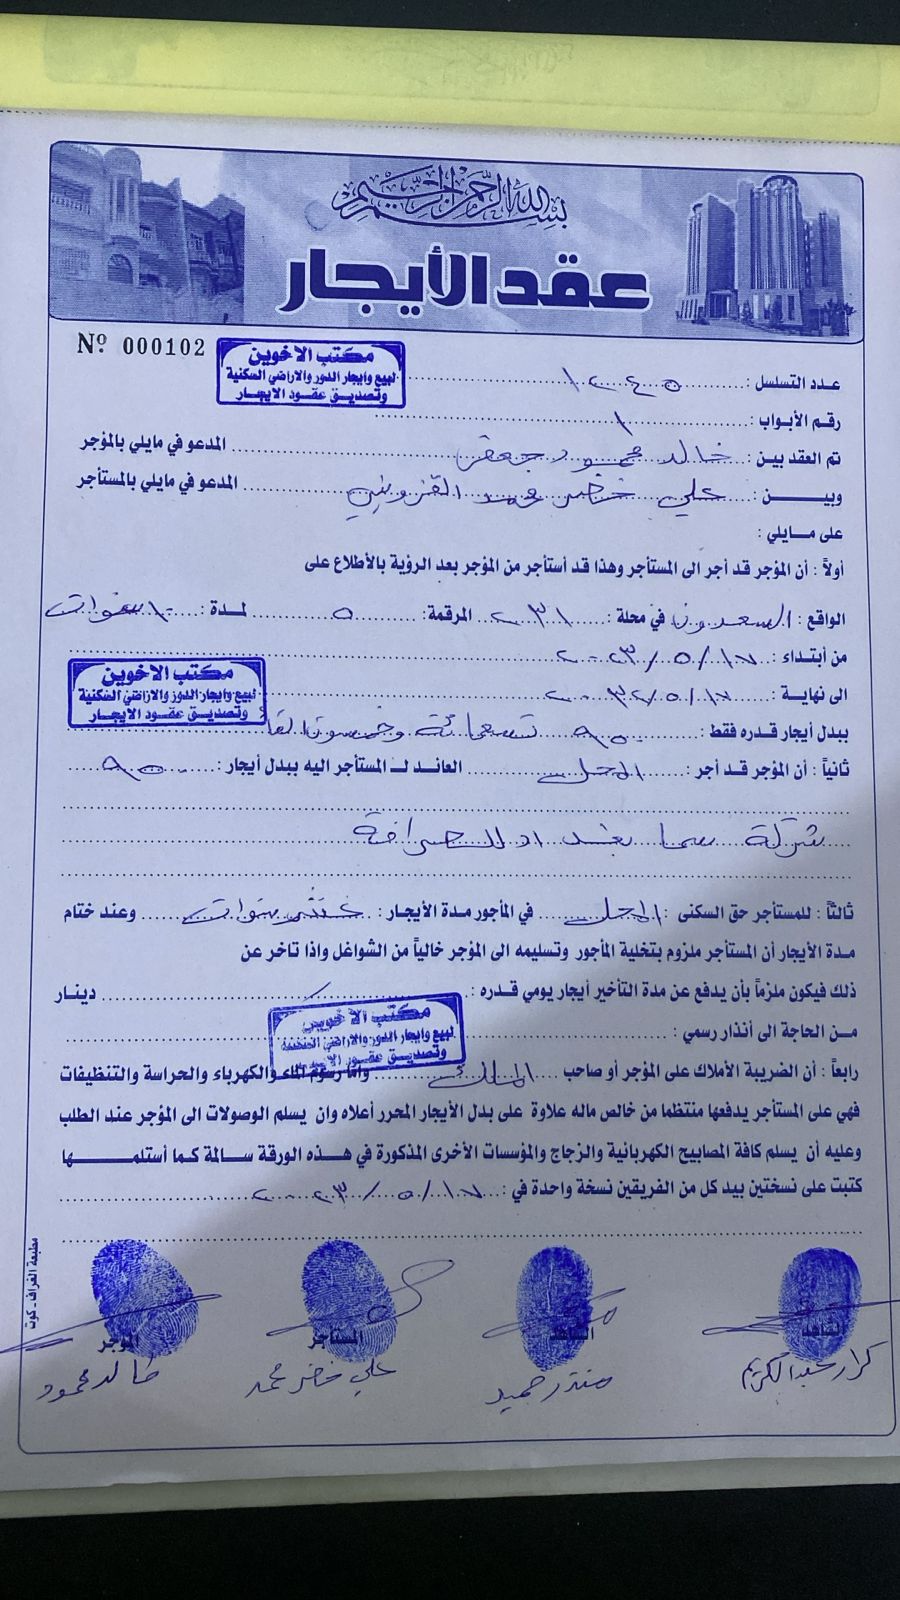 بسم الله الرحمن الرحيم
عقد الأيجار
Nº 000102
مكتب الاخوين
لبيع وايجار الدور والاراضي السكنية
وتصديق عقود الايجار
عدد التسلسل : ١٢٤٥
رقم الأبواب : ١
تم العقد بين : خالد محمود جعفر المدعو في مايلي بالمؤجر
وبيـــن : علي خضر محمد القزويني المدعو في مايلي بالمستأجر
على مـايلي :
أولاً : أن المؤجر قد أجر الى المستأجر وهذا قد أستأجر من المؤجر بعد الرؤية بالأطلاع على
الواقع : السعدون في محلة : ٢٣١ المرقمة: ٥ لمـدة : ١٠ سنوات
من أبتداء : ٢٠٢٣/٥/١٧
الى نهاية : ٢٠٣٢/٥/١٧
مكتب الاخوين
لبيع وايجار الدور والاراضي السكنية
وتصديق عقود الايجار
ببدل أيجار قدره فقط : ٩٥٠ تسعمائة وخمسون الفا
ثانياً : أن المؤجر قد أجر : المحل العائد لـ المستأجر اليه ببدل أيجار : ٩٥٠
شركة سما بغداد للصرافة
ثالثاً : للمستأجر حق السكنى : المحل في المأجور مدة الأيجار : عشر سنوات وعند ختام
مـدة الأيجار أن المستأجر ملزوم بتخلية المأجور وتسليمه الى المؤجر خالياً من الشواغل واذا تاخر عن
ذلك فيكون ملزماً بأن يدفع عن مدة التأخير أيجار يومي قـدره : دينـار
مكتب الاخوين
لبيع وايجار الدور والاراضي السكنية
وتصديق عقود الايجار
مـن الحاجة الى أنذار رسمي :
رابعاً : أن الضريبة الأملاك على المؤجر أو صاحب الملك واما رسوم الماء والكهرباء والحراسة والتنظيفات
فهي على المستأجر يدفعها منتظما من خالص ماله علاوة على بدل الأيجار المحرر أعلاه وان يسلم الوصولات الى المؤجر عند الطلب
وعليه أن يسلم كافة المصابيح الكهربائية والزجاج والمؤسسات الأخرى المذكورة في هـذه الورقة سـالمة كمـا أستلمـــها
كتبت على نسختين بيد كل من الفريقين نسخة واحدة في : ٢٠٢٣/٥/١٧
الشاهد الشاهد المستأجر المؤجر
كرار عبد الكريم منذر حميد علي خضر محمد خالد محمود
مطبعة الغراف ـ كوت